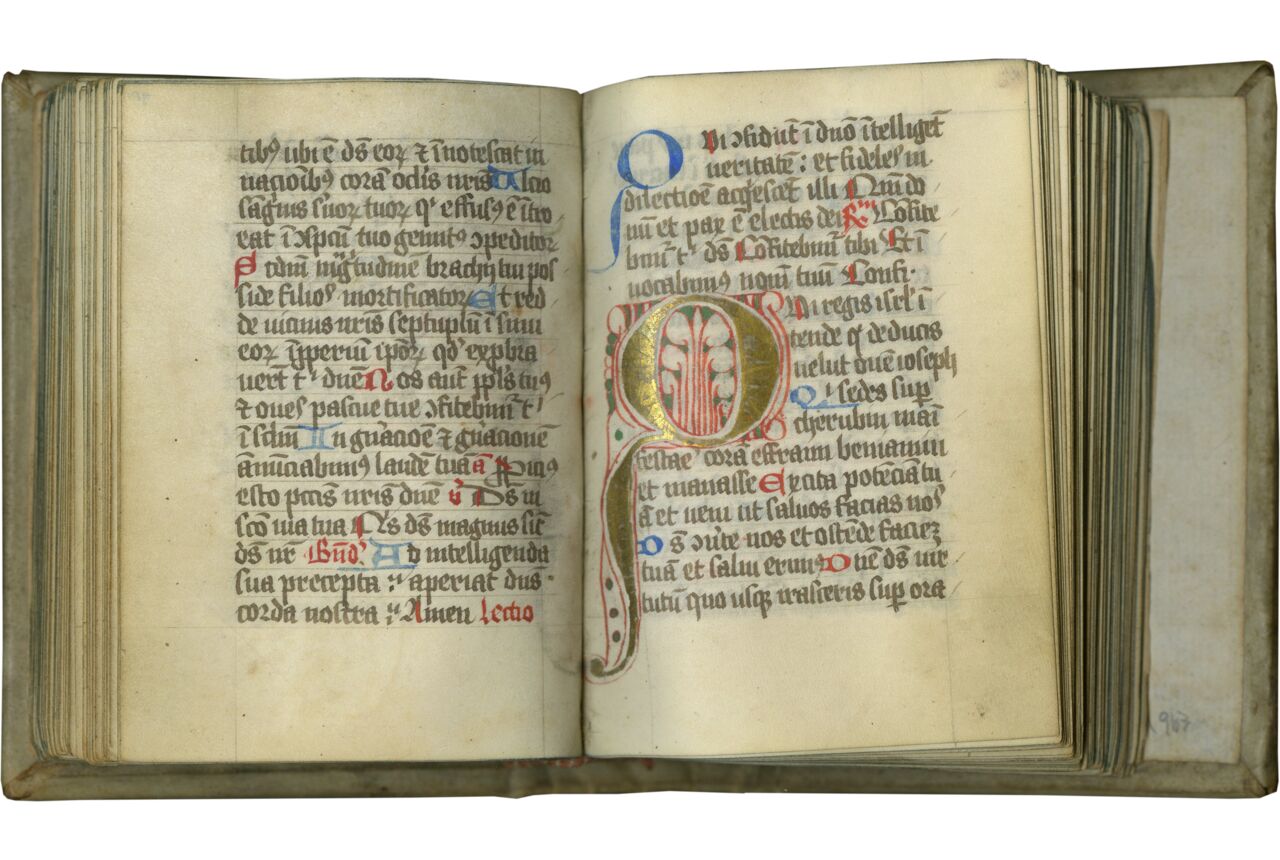 tibꝰ ubi ē ds̄ eoꝝ ⁊ īnotescat in
nacioībꝰ corā oclis nr̄is Ulcio
sāguis suoꝝ tuoꝝ qͥ effusꝰ ē ītro
eat ī ↄspcū tuo gemitꝰ ↄpeditoꝝ
Scdm̄ mg̅tudinē brachij tui pos
side filiosͦ mortificatoꝝ Et red
de uicinis nr̄is septuplū ī sinu
eoꝝ īpꝑiuī ip̄oꝝ qd̓ exꝓbra
uer̄t tͥ dn̄e Nos aut̄ ppl̓s tuꝰ
⁊ oues pascue tue ↄfitebim̄ tͥ
ī sclm̄ In gn̄acioē ⁊ gn̄acionē
ānūciabimꝰ laudē tuā ā Ꝓpiciꝰ
esto pccīs nr̄is dn̄e v̓ Ds̄ in
scō uia tua Qͥs ds̄ magnus sic̄
ds̄ nr̄ Bn̄d̓. Ad intelligenda
sua precepta : aperiat dn̄s
corda nostra : Amen Lectio
Qui ↄfidūt ī dn̄o ītelliget̄
ueritatē : et fideles in
dilectioē acq̓escēt illi Qm̄ do
nū et pax ē electis dei R̄ Cōfite
bim̄ tͥ ds̄ Cōfitebim̄ tibi Et ī
uocabimꝰ nom̄ tuū Confi.
Qui regis isrl̓ ī
tende qͥ deducis
uelut ouē ioseph
Qͥ sedes suꝑ
cherubin maī
festaē corā effraim beniamin
et manasse Excita potēciā tu
ā et ueni ut saluos facias nos
Ds̄ ↄūte nos et ostēde faciez
tuā et salui erimꝰ Dn̄e ds̄ uir
tutū quo usqꝫ irasceris suꝑ ora
967